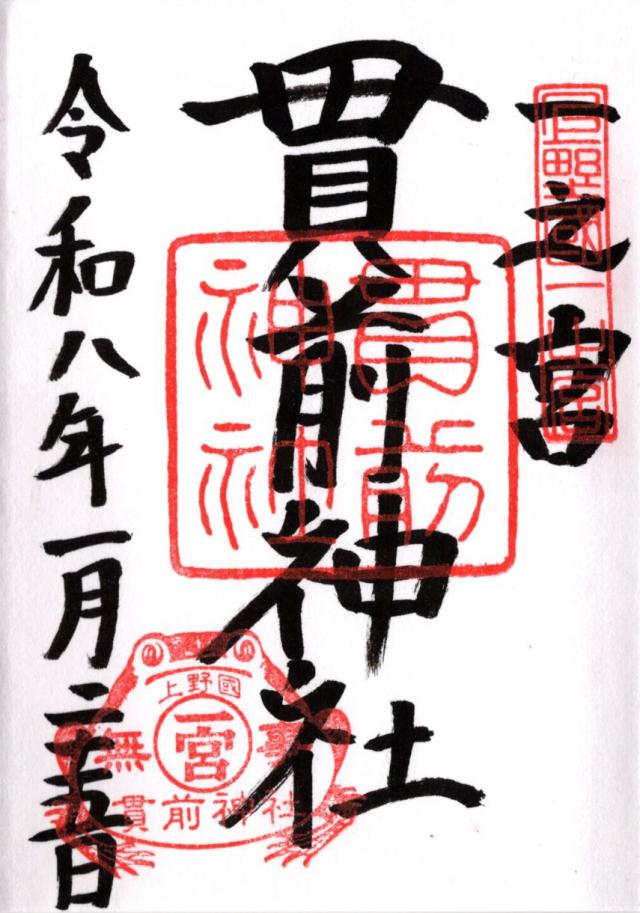 一之宮
上野國一之宮
貫前神社
貫前神社
令和八年一月二十五日
上野國
一宮
無事
貫前神社